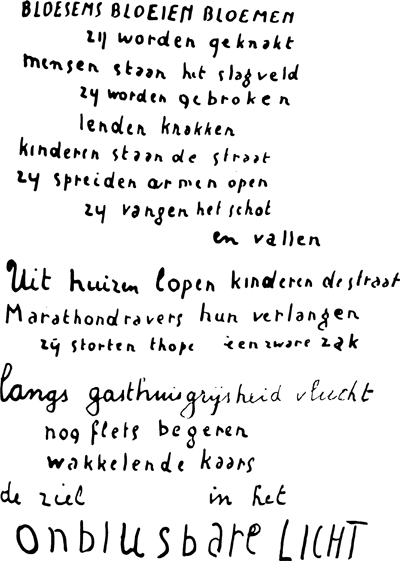 BLOESEMS BLOEIEN BLOEMEN
zij worden geknakt
mensen staan het slagveld
zy worden gebroken
lenden knakken
kinderen staan de straat
zy spreiden armen open
zy vangen het schot
en vallen
Uit huizen lopen kinderen de straat
Marathondravers hun verlangen
zij storten thope een zware zak
langs gasthuisgrijsheid vlucht
nog flets begeren
wakkelende kaars
de ziel in het
onblusbare LICHT